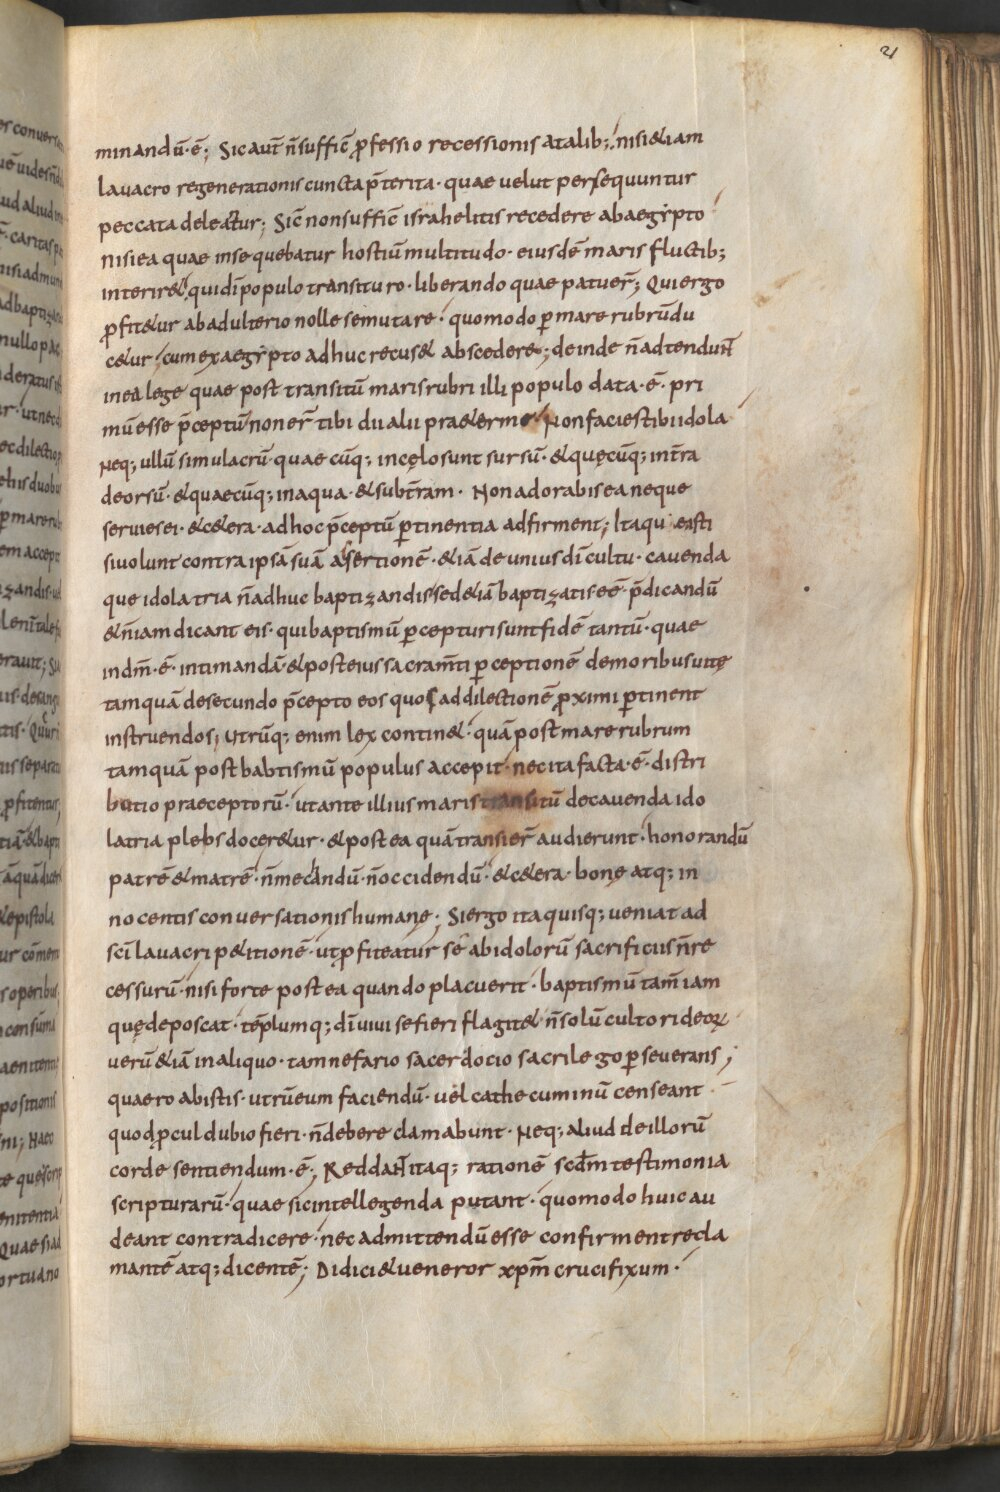 21
minandū·ē; Sic aut̄ n̄ suffic̄ ꝓfessio recessionis a talib; nisi &iam
lauacro regenerationis cuncta p̄terita· quae uelut persequuntur
peccata deleatur; Sic̄ non suffic̄ israhelitis recedere ab aegẏpto
nisi ea quae insequebatur hostiū multitudo· eiusdē maris fluctib;
interir&, qui dī populo transituro· liberando quae patuer̄; Qui ergo
ꝓfit&ur ab adulterio nolle se mutare· quomodo ꝑ mare rubrū du
c&ur, cum ex aegẏpto adhuc recus& abscedere; deinde n̄ adtendunt
in ea lege quae post transitū maris rubri illi populo data·ē· pri
mū esse p̄ceptū non er̄ tibi dii alii praeter me Non facies tibi idola
Neq; ullū simulacrū· quae cūq; in cęlo sunt sursū· & quęcūq; in t̄ra
deorsū· & quaecūq; in aqua· & sub t̄ram· Non adorabis ea neque
seruies ei· & c&era· ad hoc p̄ceptū ꝑtinentia adfirment; Itaqu isti
si uolunt contra ipsā suā assertionē· &iā de unius dī cultu· cauenda
que idolatria n̄ adhuc baptizandis sed &iā baptizatis· eē· p̄dicandū
& n̄ iam dicant eis· qui baptismū ꝑcepturi sunt fidē tantū· quae
in dm̄·ē· intimandā· & post eius sacram̄ti ꝑceptionē de moribus uitę
tamquā de secundo p̄cepto eos quos ad dilectionē ꝓximi ꝑtinent
instruendos; Utrūq; enim lex contin&· quā post mare rubrum
tamquā post babtismū populus accepit· nec ita facta·ē· distri
butio praeceptorū· ut ante illius maris transitū de cauenda ido
latria plebs docer&ur· & post ea quā transier̄ audierunt· honorandū
patrē & matrē· n̄ mechandū· n̄ occidendū· & c&era· bonę atq; in
nocentis conuersationis humanę; Si ergo ita quisq; ueniat ad
scī lauacri p&itionē· ut ꝓfiteatur se ab idolorū sacrificiis n̄ re
cessurū· nisi forte post ea quando placuerit· baptismū tam̄ iam
quę deposcat· tēplumq; dī uiui se fieri flagit& n̄ solū cultor ideoꝝ
uerū &iā in aliquo· tam nefario sacerdocio sacrilego ꝑseuerans;
quaero ab istis· utrū eum faciendū· uel cathecuminū censeant
quod ꝓcul dubio fieri· n̄ debere clamabunt· Neq; aliud de illorū
corde sentiendum·ē; Reddant itaq; rationē scd̄m testimonia
scripturarū· quae sic intellegenda putant· quomodo huic au
deant contradicere· nec admittendū esse confirment recla
mantē atq; dicentē; Didici & ueneror xp̄m crucifixum·